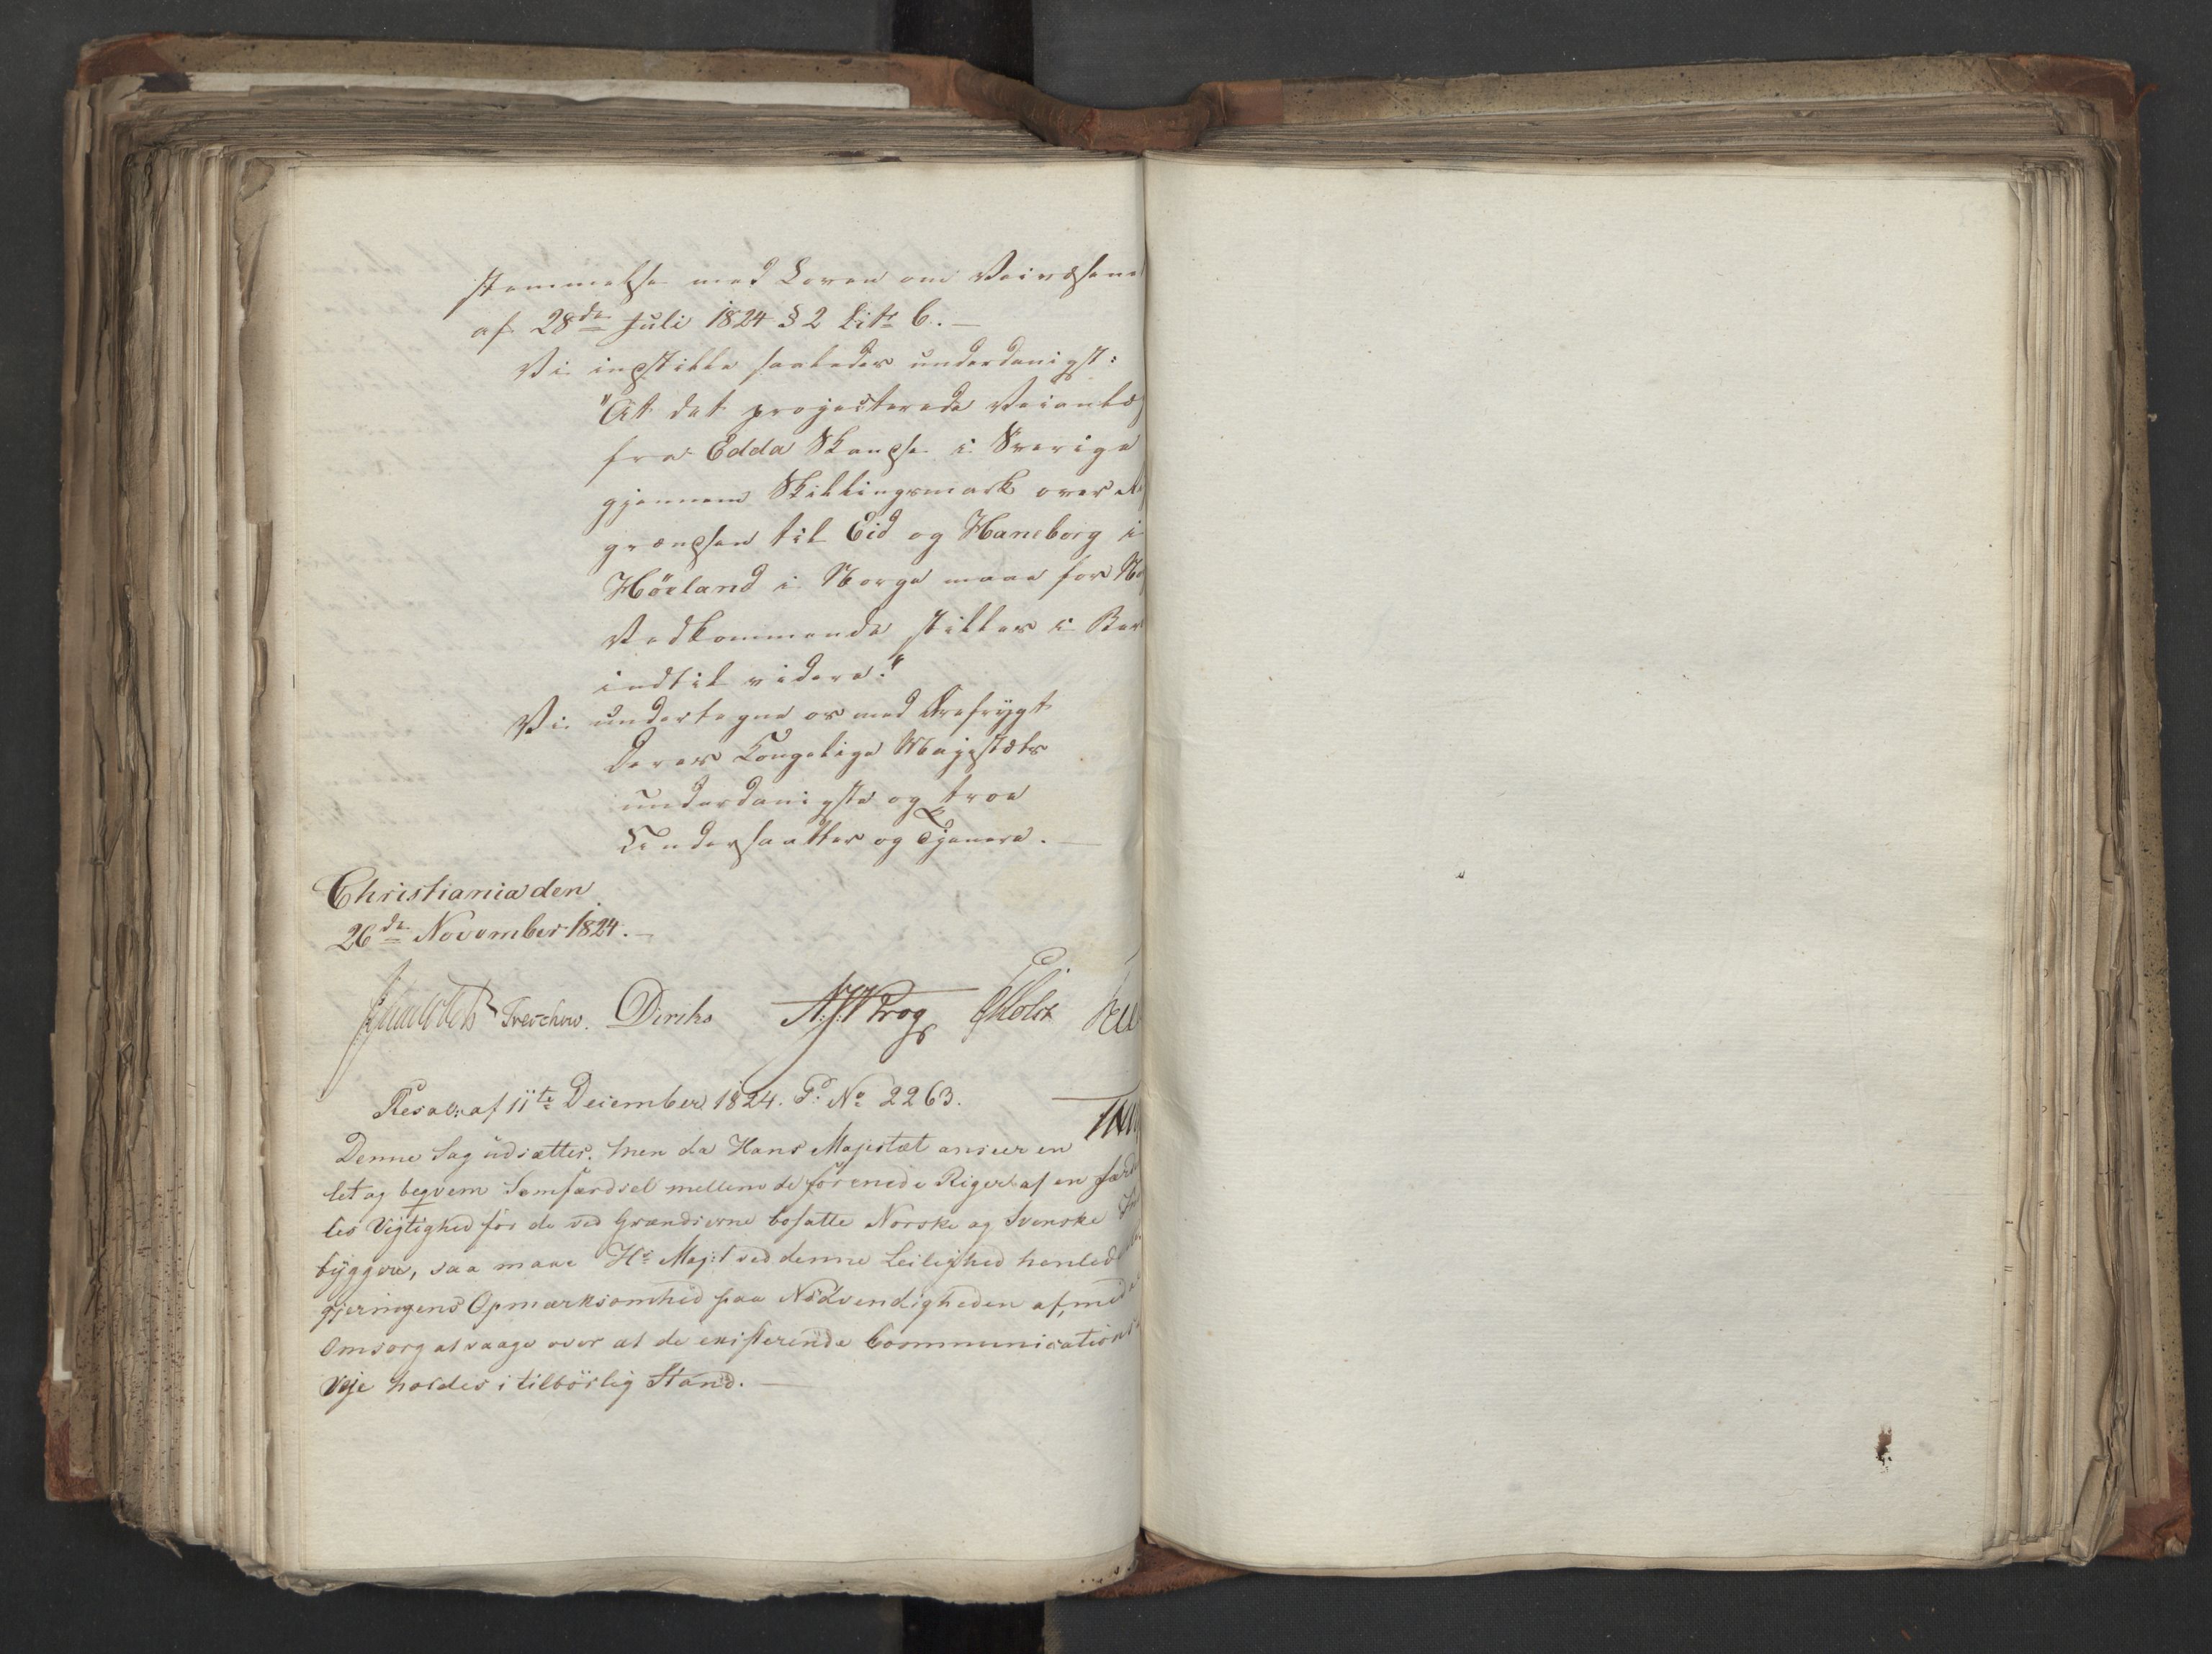 stemmelse med Loven om Veivæsenet
af 28de Juli 1824 § 2 Litr b. —
Vi indstille saaledes underdanigst:
"At det projecterede Veianlæg
fra Edda Skandse i Sverige
gjennem Skillingsmark over
grændsen til Eid og Haneborg i
Höeland i Norge maae for
Vedkommende stilles i
indtil videre."
Vi undertegne os med Ærefrygt
Deres Kongelige Majestæts
underdanigste og troe
Undersaatter og Tjenere. —
Christiania den
26de November 1824. —
Treschow. Diriks Krog Holst
Resol: af 11te December 1824. P: No 2263.
Denne Sag udsættes. Men da Hans Majestæt anseer en
let og beqvem Samfærdsel mellem de forenede Riger af en
les Vigtighed for de ved Grændserne bosatte Norske og Svenske
byggere, saa maae Hs Maj:t ved denne Leilighed henlede
gjeringens Opmærksomhed paa Nödvendigheden af, med
Omsorg at vaage over at de existerende Communications
Veje holdes i tilbörlig Stand. —